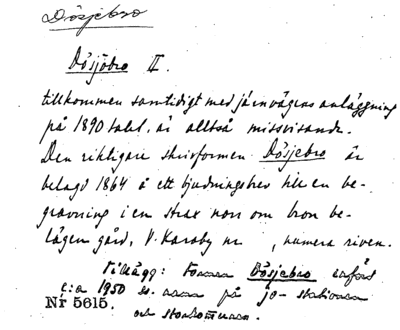 Dösjebro
Dösjöbro II.
tillkommen samtidigt med järnvägens anläggning
på 1890 talet, är alltså missvisande.
Den riktigare skrivformen Dösjebro är
belagd 1864 å ett bjudningsbrev till en be-
gravning i en strax norr om bron be-
lägen gård, V. Karaby nr , numera riven.
Tillägg: Formen Dösjebro införd
c:a 1950 som namn på jv-stationen
Nr 5615. och